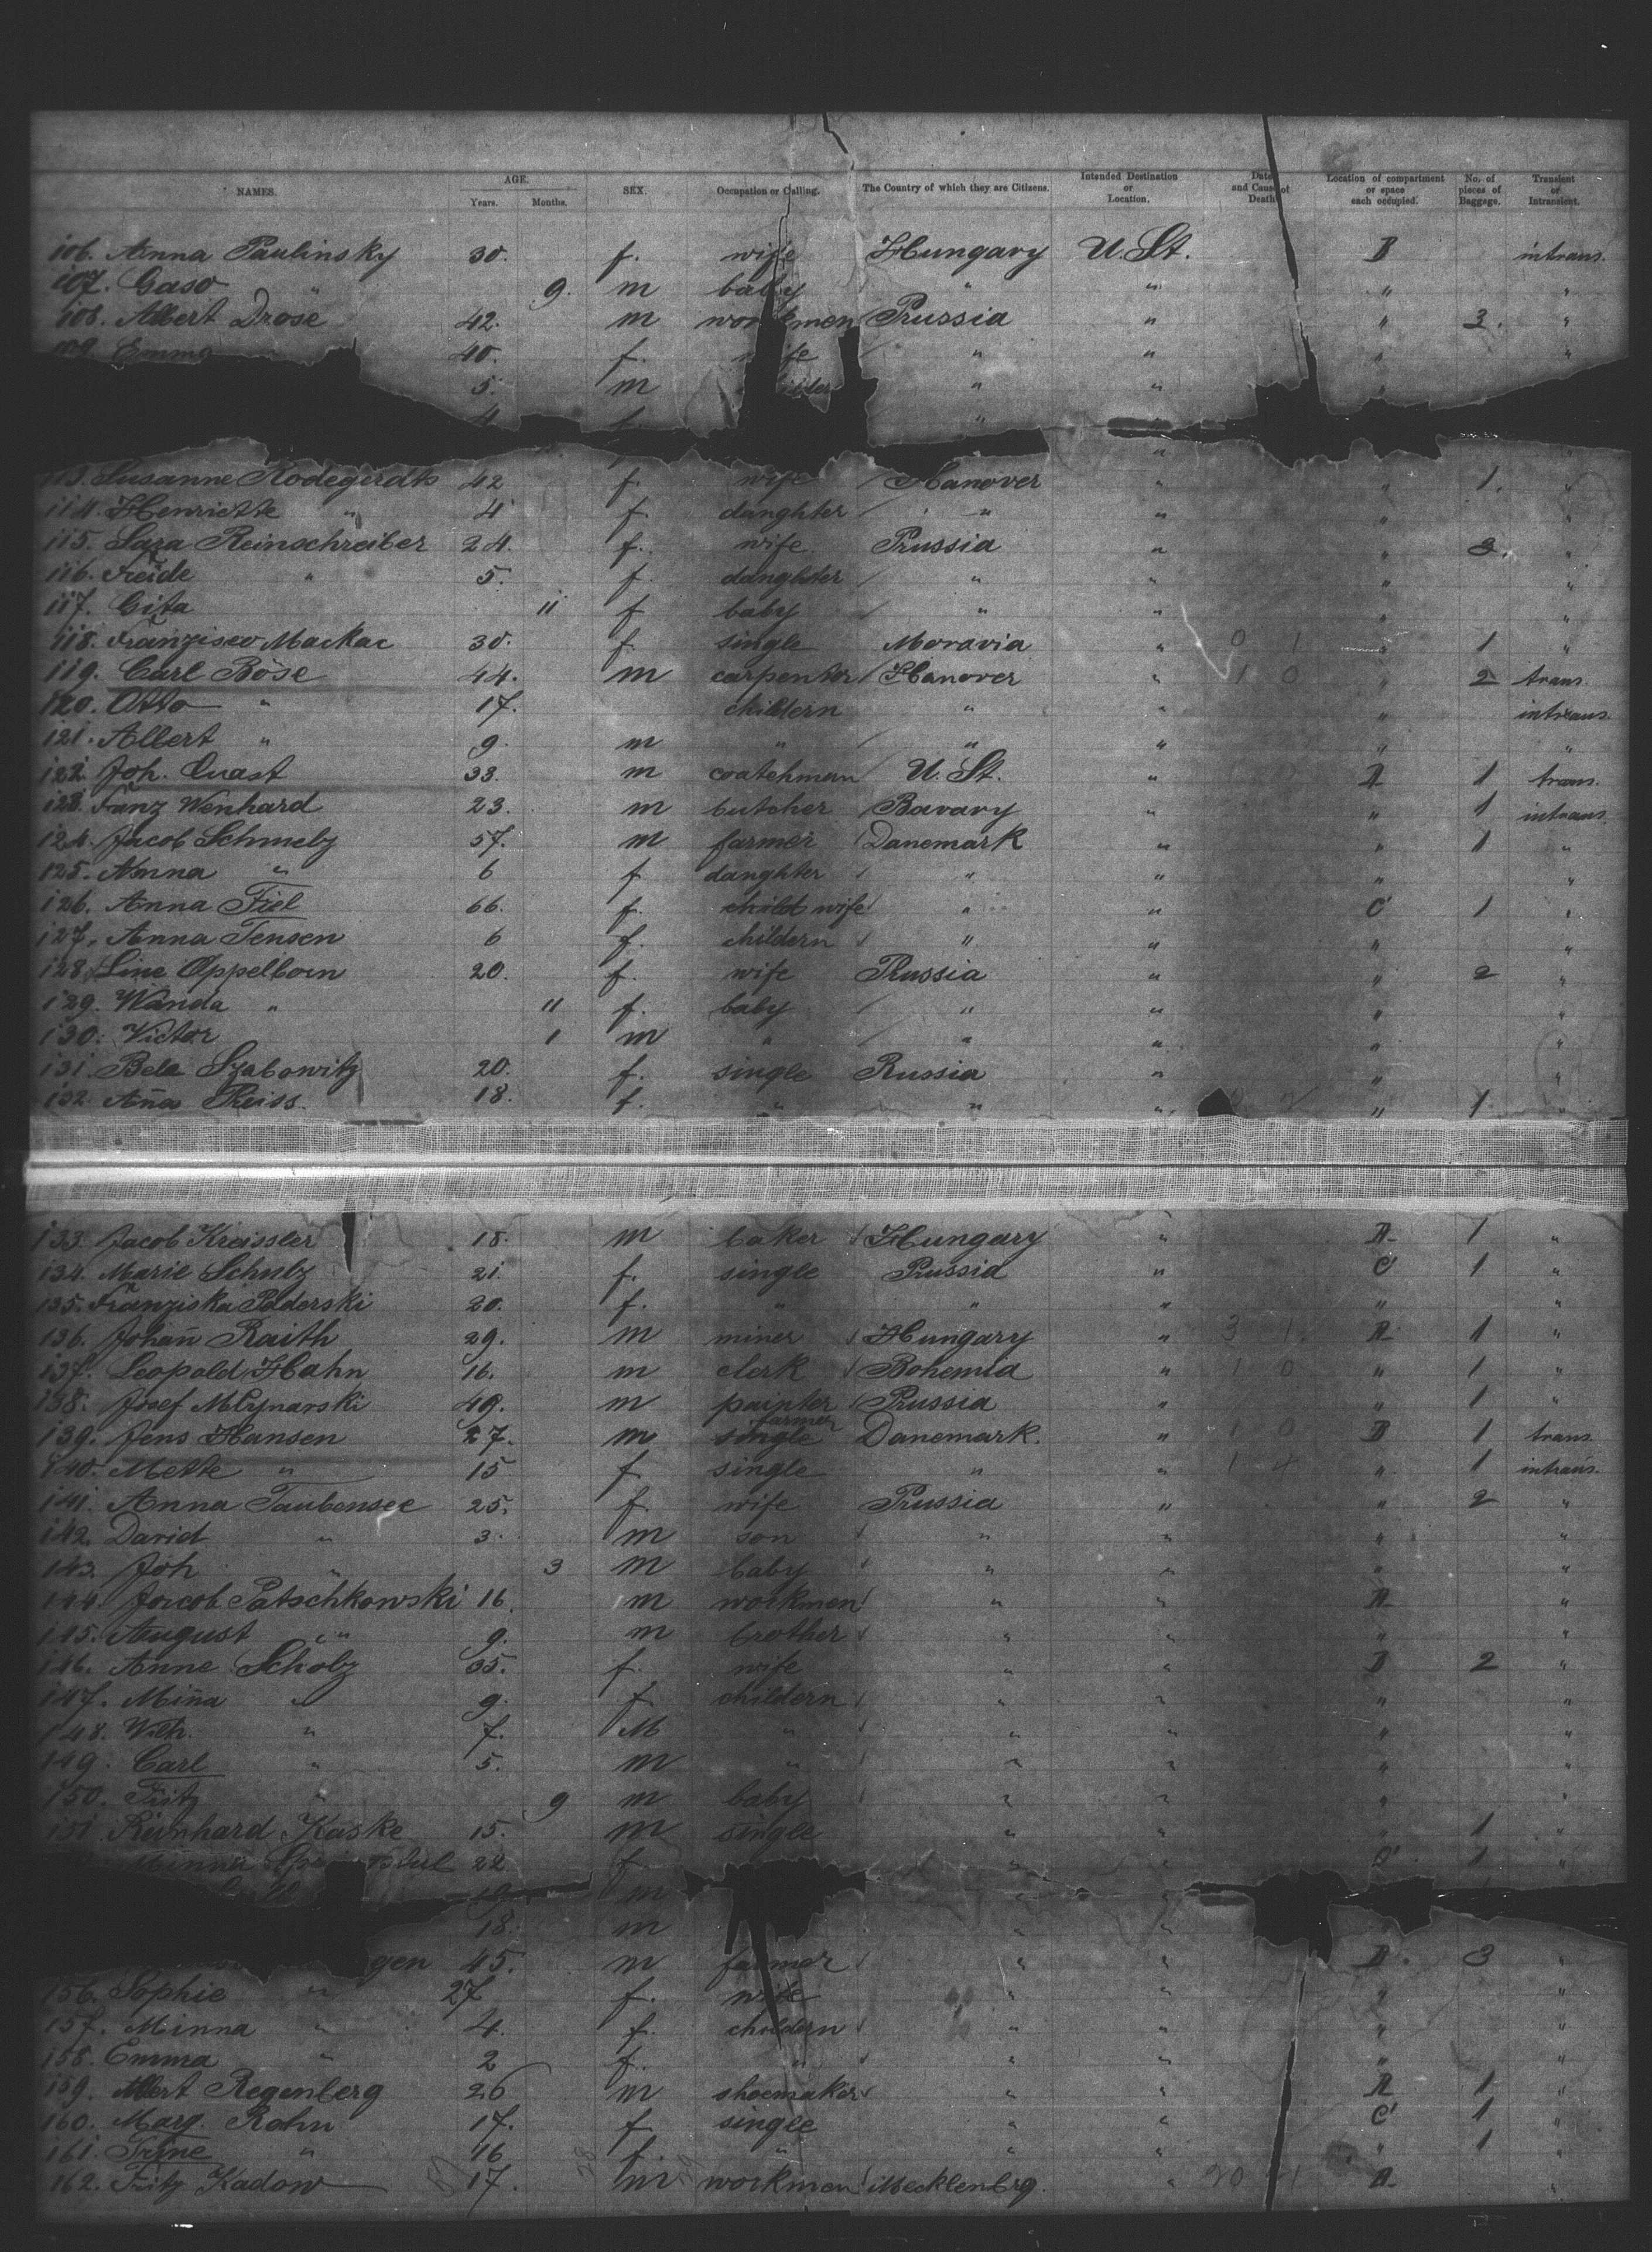 NAMES. AGE. Years. Months. SEX. Occupation or Calling. The Country of which they are Citizens. Intended Destination or Location. Date and Cause of Death Location of compartment or space each occupied. No. of pieces of Baggage. Transient or Intransient.
106. Anna Paulinsky 30. f. wife Hungary U. St. B intrans.
107. Gaso " 9. m baby " " " "
108. Albert Drose 42. m workmen Prussia " " 3. "
109. Emma 40. f. wife " " " "
5. m " " "
4. f. "
113. Susanne Rodegerdts 42 f. wife Hanover " " 1. "
114. Henriette " 4 f. daughter " " " "
115. Sara Reinschreiber 24. f. wife Prussia " " 3. "
116. Freide " 5. f. daughter " " " "
117. Gita 11 f baby " " " "
118. Franzisco Mackac 30. f. single Moravia " 0 1 " 1 "
119. Carl Böse 44. m carpenter Hanover " 1 0 " 2 trans.
120. Otto " 17. childern " " " intrans.
121. Albert " 9. m " " " " "
122. Joh. Quast 33. m coatchman U. St. " A 1 trans.
123. Franz Wenhard 23. m butcher Bavary " " 1 intrans.
124. Jacob Schmelz 57. m farmer Danemark " " 1 "
125. Anna " 6 f daughter " " " "
126. Anna Fiel 66. f. child wife " " C 1 "
127. Anna Jensen 6 f. childern " " " "
128. Line Oppelborn 20. f. wife Prussia " " 2 "
129. Wanda " 11 f. baby " " " "
130. Victor 1 m " " " " "
131. Bela Szabowitz 20. f. single Russia " " "
132. Aña Preiss. 18. f. " " " " 1. "
133. Jacob Kreissler 18. m baker Hungary " A 1 "
134. Marie Schulz 21. f. single Prussia " C 1 "
135. Franziska Paderski 20. f. " " " " "
136. Johañ Raith 29. m miner Hungary " 3 1. A 1 "
137. Leopold Hahn 16. m clerk Bohemia " 1 0 " 1 "
138. Josef Mlynarski 49. m painter Prussia " " 1 "
139. Jens Hansen 27. m single farmer Danemark. " 1 0 B 1 trans.
140. Mette " 15 f single " " 1 4 " 1 intrans.
141. Anna Taubensee 25. f. wife Prussia " " 2 "
142. David " 3. m son " " " "
143. Joh. " 3 m baby " " " "
144. Jacob Patschkowski 16. m workmen " " A "
145. August " 9. m brother " " " "
146. Anne Scholz 35. f. wife " " B 2 "
147. Miña " 9. f childern " " " "
148. Wilh. " 7. M " " " " "
149. Carl " 5. m " " " " "
150. Fritz " 9 m baby " " " "
151. Reinhard Kaske 15. m single " " " 1 "
Minna 22 f. " " C 1 "
m
18. m " " " "
gen 45. m farmer " " B. 3 "
156. Sophie " 27 f. wife " " " "
157. Minna " 4. f. childern " " " "
158. Emma " 2 f. " " " " "
159. Albert Regenberg 26 m shoemaker " " A 1 "
160. Marg. Rohn 17. f single " " C 1 "
161. Trine " 16 f. " " " " 1 "
162. Fritz Kadow 17. m workmen Mecklenbrg. " A "